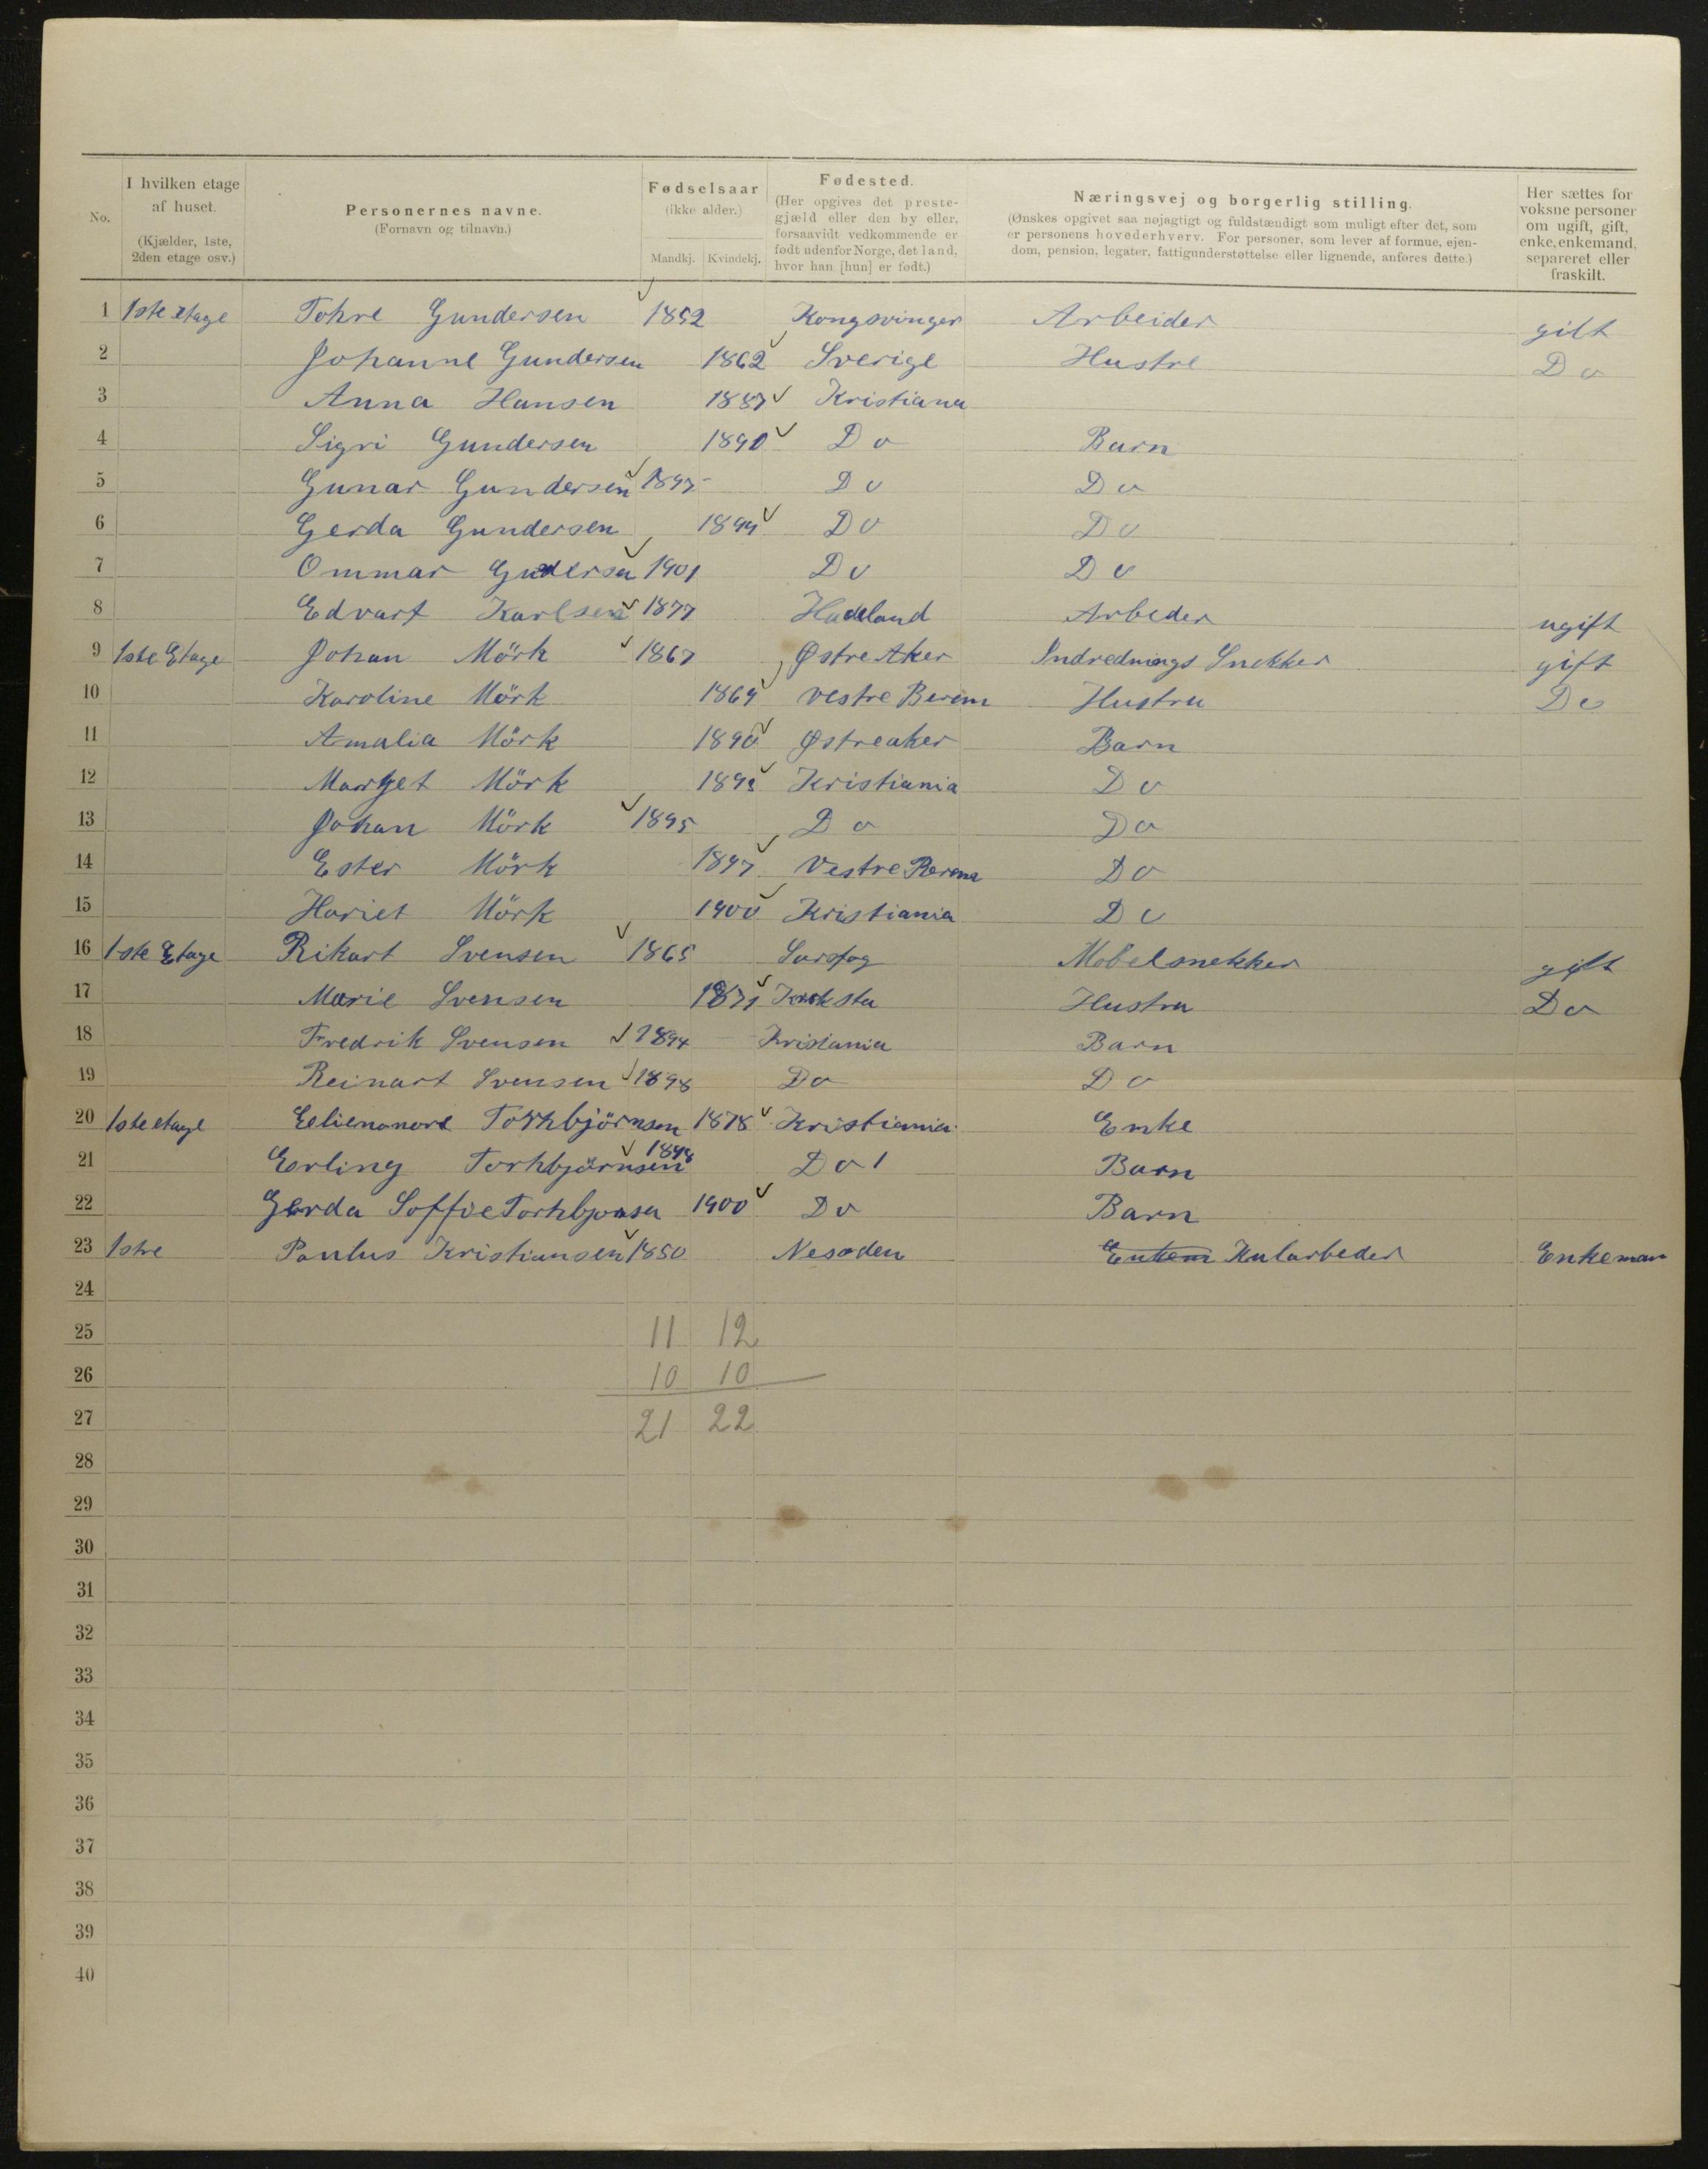 No.
I hvilken etage af huset.
(Kjælder, 1ste, 2den etage osv.)
Personernes navne.
(Fornavn og tilnavn.)
Fødselsaar
(ikke alder.)
Mandkj. Kvindekj.
Fødested.
(Her opgives det prestegjæld eller den by eller, forsaavidt vedkommende er født udenfor Norge, det land, hvor han [hun] er født.)
Næringsvej og borgerlig stilling.
(Ønskes opgivet saa nøjagtigt og fuldstændigt som muligt efter det, som er personens hovederhverv. For personer, som lever af formue, ejendom, pension, legater, fattigunderstøttelse eller lignende, anføres dette.)
Her sættes for voksne personer om ugift, gift, enke, enkemand, separeret eller fraskilt.
1 1ste etage Tohre Gundersen 1852 Kongsvinger Arbeider gift
2 Johanne Gundersen 1862 Sverige Hustre Do
3 Anna Hansen 1887 Kristiana
4 Sigri Gundersen 1890 Do Barn
5 Gunar Gundersen 1897 Do Do
6 Gerda Gundersen 1899 Do Do
7 Ommar Gundersen 1901 Do Do
8 Edvart Karlsen 1877 Hadeland Arbeder ugift
9 1ste Etage Johan Mörk 1867 Østre Aker Indrednings Snekker gift
10 Karoline Mörk 1869 vestre Berem Hustru Do
11 Amalia Mörk 1890 Østreaker Barn
12 Marget Mörk 1893 Kristiania Do
13 Johan Mörk 1895 Do Do
14 Ester Mörk 1897 Vestre Berem Do
15 Hariet Mörk 1900 Kristiania Do
16 1ste Etage Rikart Svensen 1865 Sarsfog Mobelsnekker gift
17 Marie Svensen 1871 Hustru Do
18 Fredrik Svensen 1894 Kristania Barn
19 Reinart Svensen 1898 Do Do
20 1ste etage Elienanore Torkbjörnsen 1878 Kristiania Enke
21 Erling Torkbjörnsen 1898 Do 1 Barn
22 Gerda Soffie Torkbjonsen 1900 Do Barn
23 1stre Paulus Kristiansen 1850 Nesoden Kularbeder Enkeman
24
25 11 12
26 10 10
27 21 22
28
29
30
31
32
33
34
35
36
37
38
39
40